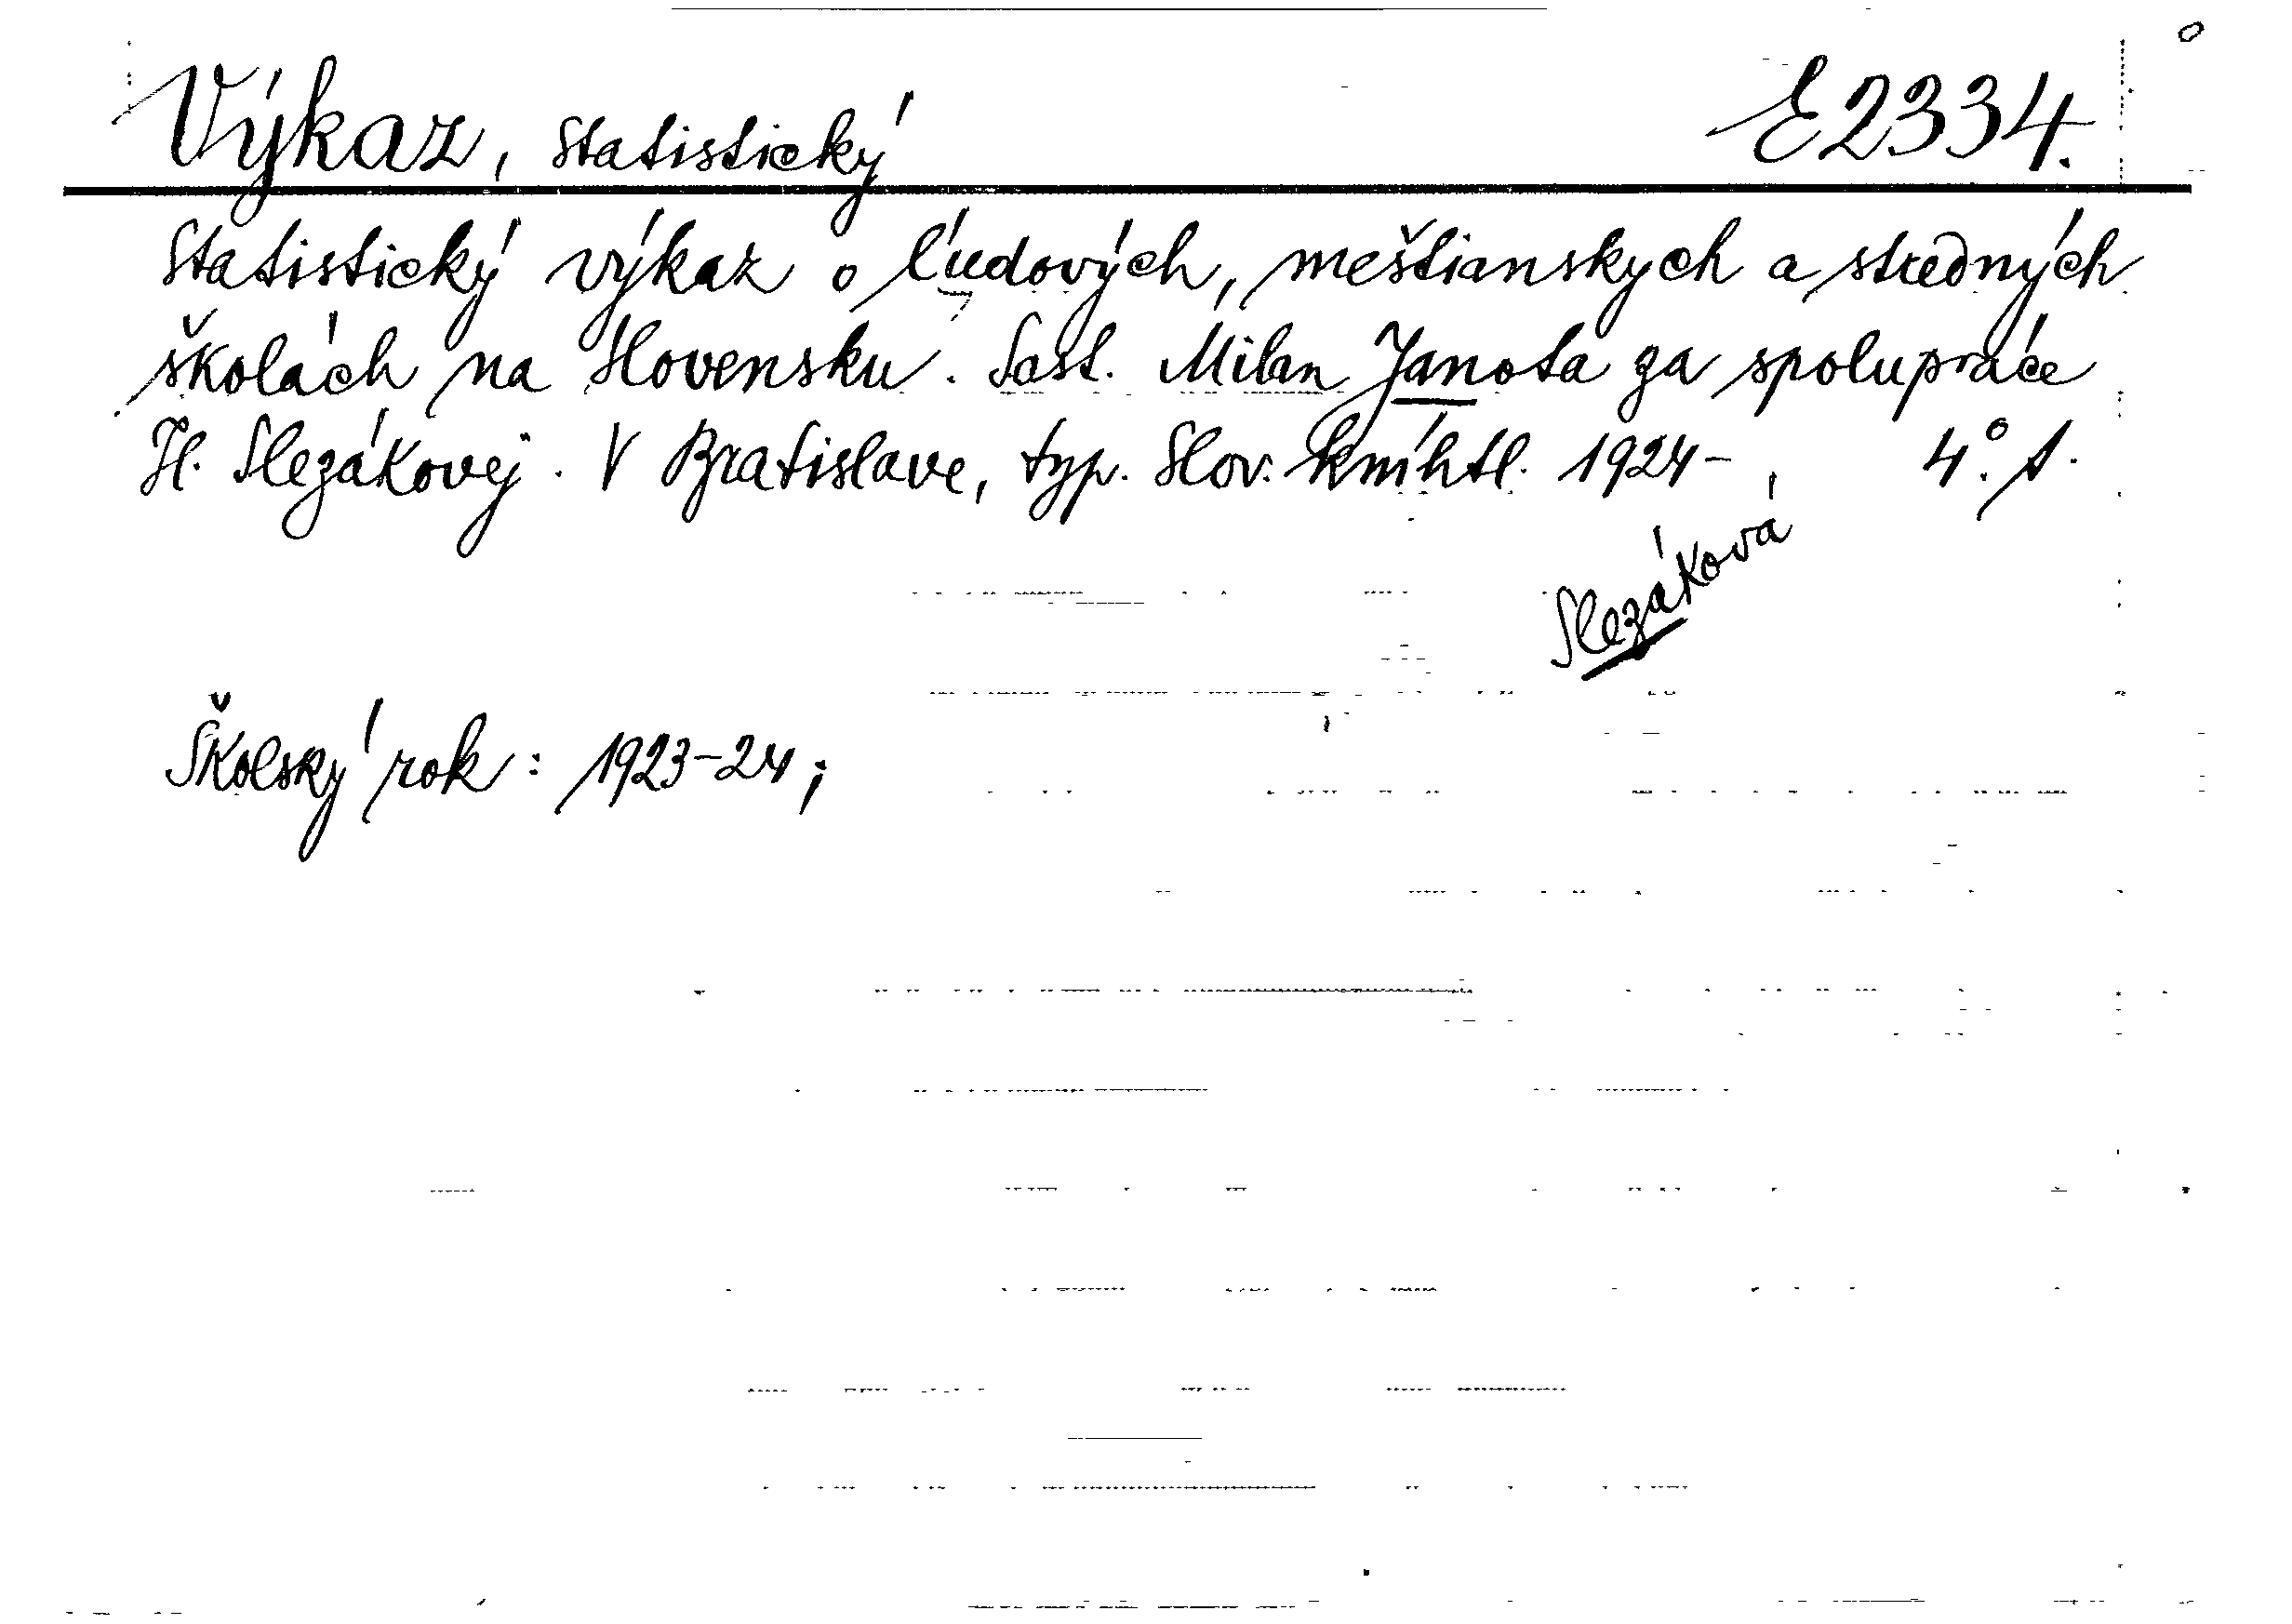 Výkaz, statistický E2334.
Statistický výkaz o ľudových, meštianskych a stredných
školách na Slovensku. Sost. Milan Janota za spolupráce
H. Slezákovej. V Bratislave, typ. Slov. kníhtl. 1924- , 4°. s.
Slezáková
Školský rok: 1923-24;